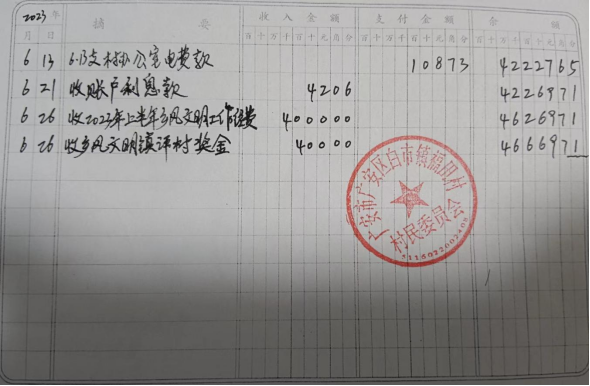 2023年 摘要 收入金额 支付金额 余额
月 日 百十万千百十元角分 百十万千百十元角分 百十万千百十元角分
6 13 6.13支村办公室电费款 10873 4222765
6 21 收账户利息款 4206 4226971
6 26 收2023年上半年乡风文明工作经费 400000 4626971
6 26 收乡风文明镇评村奖金 40000 4666971
广安市广安区白市镇福田村
村民委员会